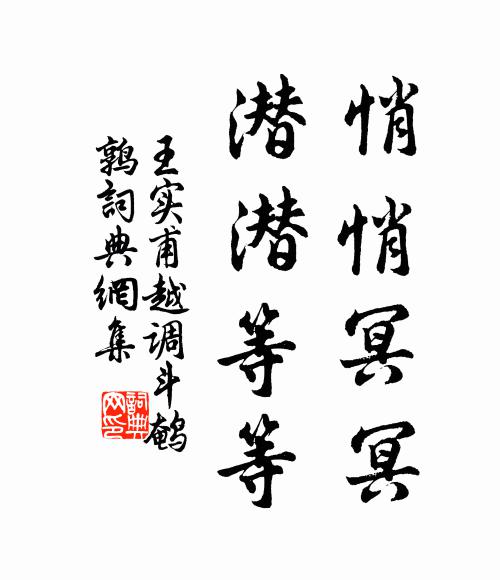 悄悄冥冥
潜潜等等
王实甫越调斗鹌
鹑詞典網集
詞典
网印